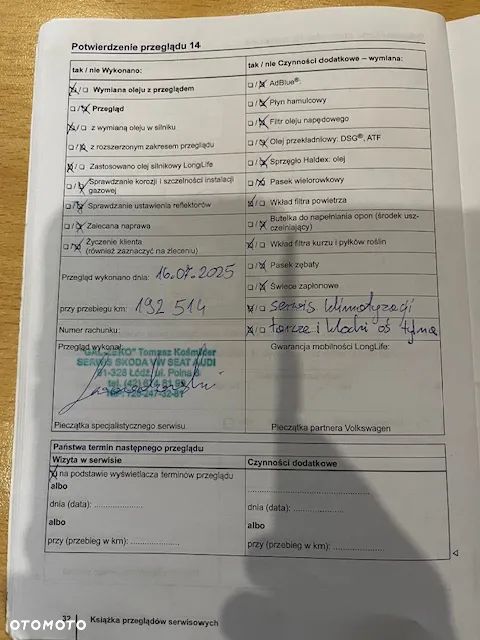 Potwierdzenie przeglądu 14
tak / nie Wykonano:
☒/☐ Wymiana oleju z przeglądem
☐/☒ Przegląd
☒/☐ z wymianą oleju w silniku
☐/☒ z rozszerzonym zakresem przeglądu
☒/☐ Zastosowano olej silnikowy LongLife
☐/☒ Sprawdzanie korozji i szczelności instalacji
gazowej
☐/☒ Sprawdzanie ustawienia reflektorów
☐/☒ Zalecana naprawa
☐/☒ Życzenie klienta
(również zaznaczyć na zleceniu)
Przegląd wykonano dnia: 16.07.2025
przy przebiegu km: 192 514
Numer rachunku:
Przegląd wykonał:
"GALCZEKO" Tomasz Kośmider
SERWIS SKODA VW SEAT AUDI
91-328 Łódź, ul. Polna
tel. (42)
NIP: 729-247-32-81
Pieczątka specjalistycznego serwisu
tak / nie Czynności dodatkowe – wymiana:
☐/☒ AdBlue®:
☐/☒ Płyn hamulcowy
☐/☒ Filtr oleju napędowego
☐/☒ Olej przekładniowy: DSG®, ATF
☐/☒ Sprzęgło Haldex: olej
☐/☒ Pasek wielorowkowy
☒/☐ Wkład filtra powietrza
☐/☒ Butelka do napełniania opon (środek usz-
czelniający)
☒/☐ Wkład filtra kurzu i pyłków roślin
☐/☒ Pasek zębaty
☐/☒ Świece zapłonowe
☒/☐ serwis klimatyzacji
☒/☐ tarcze i klocki oś tylna
Gwarancja mobilności LongLife:
Pieczątka partnera Volkswagen
Państwa termin następnego przeglądu
Wizyta w serwisie
☒ na podstawie wyświetlacza terminów przeglądu
albo
dnia (data): ....................
albo
przy (przebieg w km): ....................
Czynności dodatkowe
....................
dnia (data): ....................
albo
przy (przebieg w km): ....................
32 Książka przeglądów serwisowych
OTOMOTO